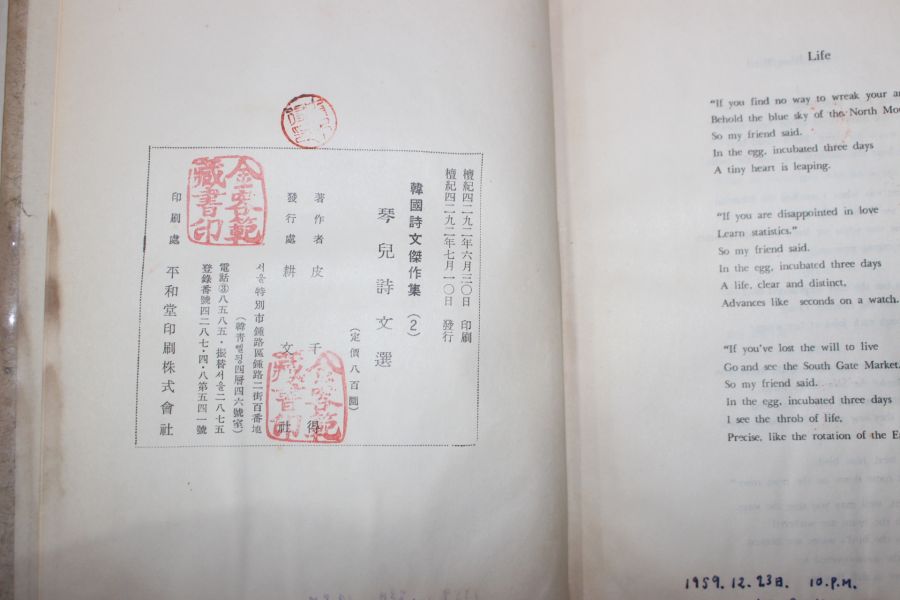 檀紀四二九二年六月三〇日 印刷
檀紀四二九二年七月一〇日 發行
韓國詩文傑作集 (2)
琴兒詩文選
(定價八百圜)
著作者 皮千得
發行處 耕文社
서울特別市鍾路區鍾路二街百番地
(韓靑삘딩四層四六號室)
電話③八五八五・振替서울二八七五
登錄番號四二八七・四・八第五四一號
印刷處 平和堂印刷株式會社
金容範
藏書印
金容範
藏書印
Life
"If you find no way to wreak your
Behold the blue sky of the North
So my friend said.
In the egg, incubated three days
A tiny heart is leaping.
"If you are disappointed in love
Learn statistics."
So my friend said.
In the egg, incubated three days
A life, clear and distinct,
Advances like seconds on a watch.
"If you've lost the will to live
Go and see the South Gate Market.
So my friend said.
In the egg, incubated three days
I see the throb of life,
Precise, like the rotation of the
1959. 12. 23日. 10. P.M.